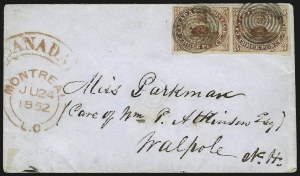 CANADA
MONTREAL
JU 24
1852
L.C.
Miss Parkman
(Care of Wm P. Atkinson Esq)
Walpole
N.H.